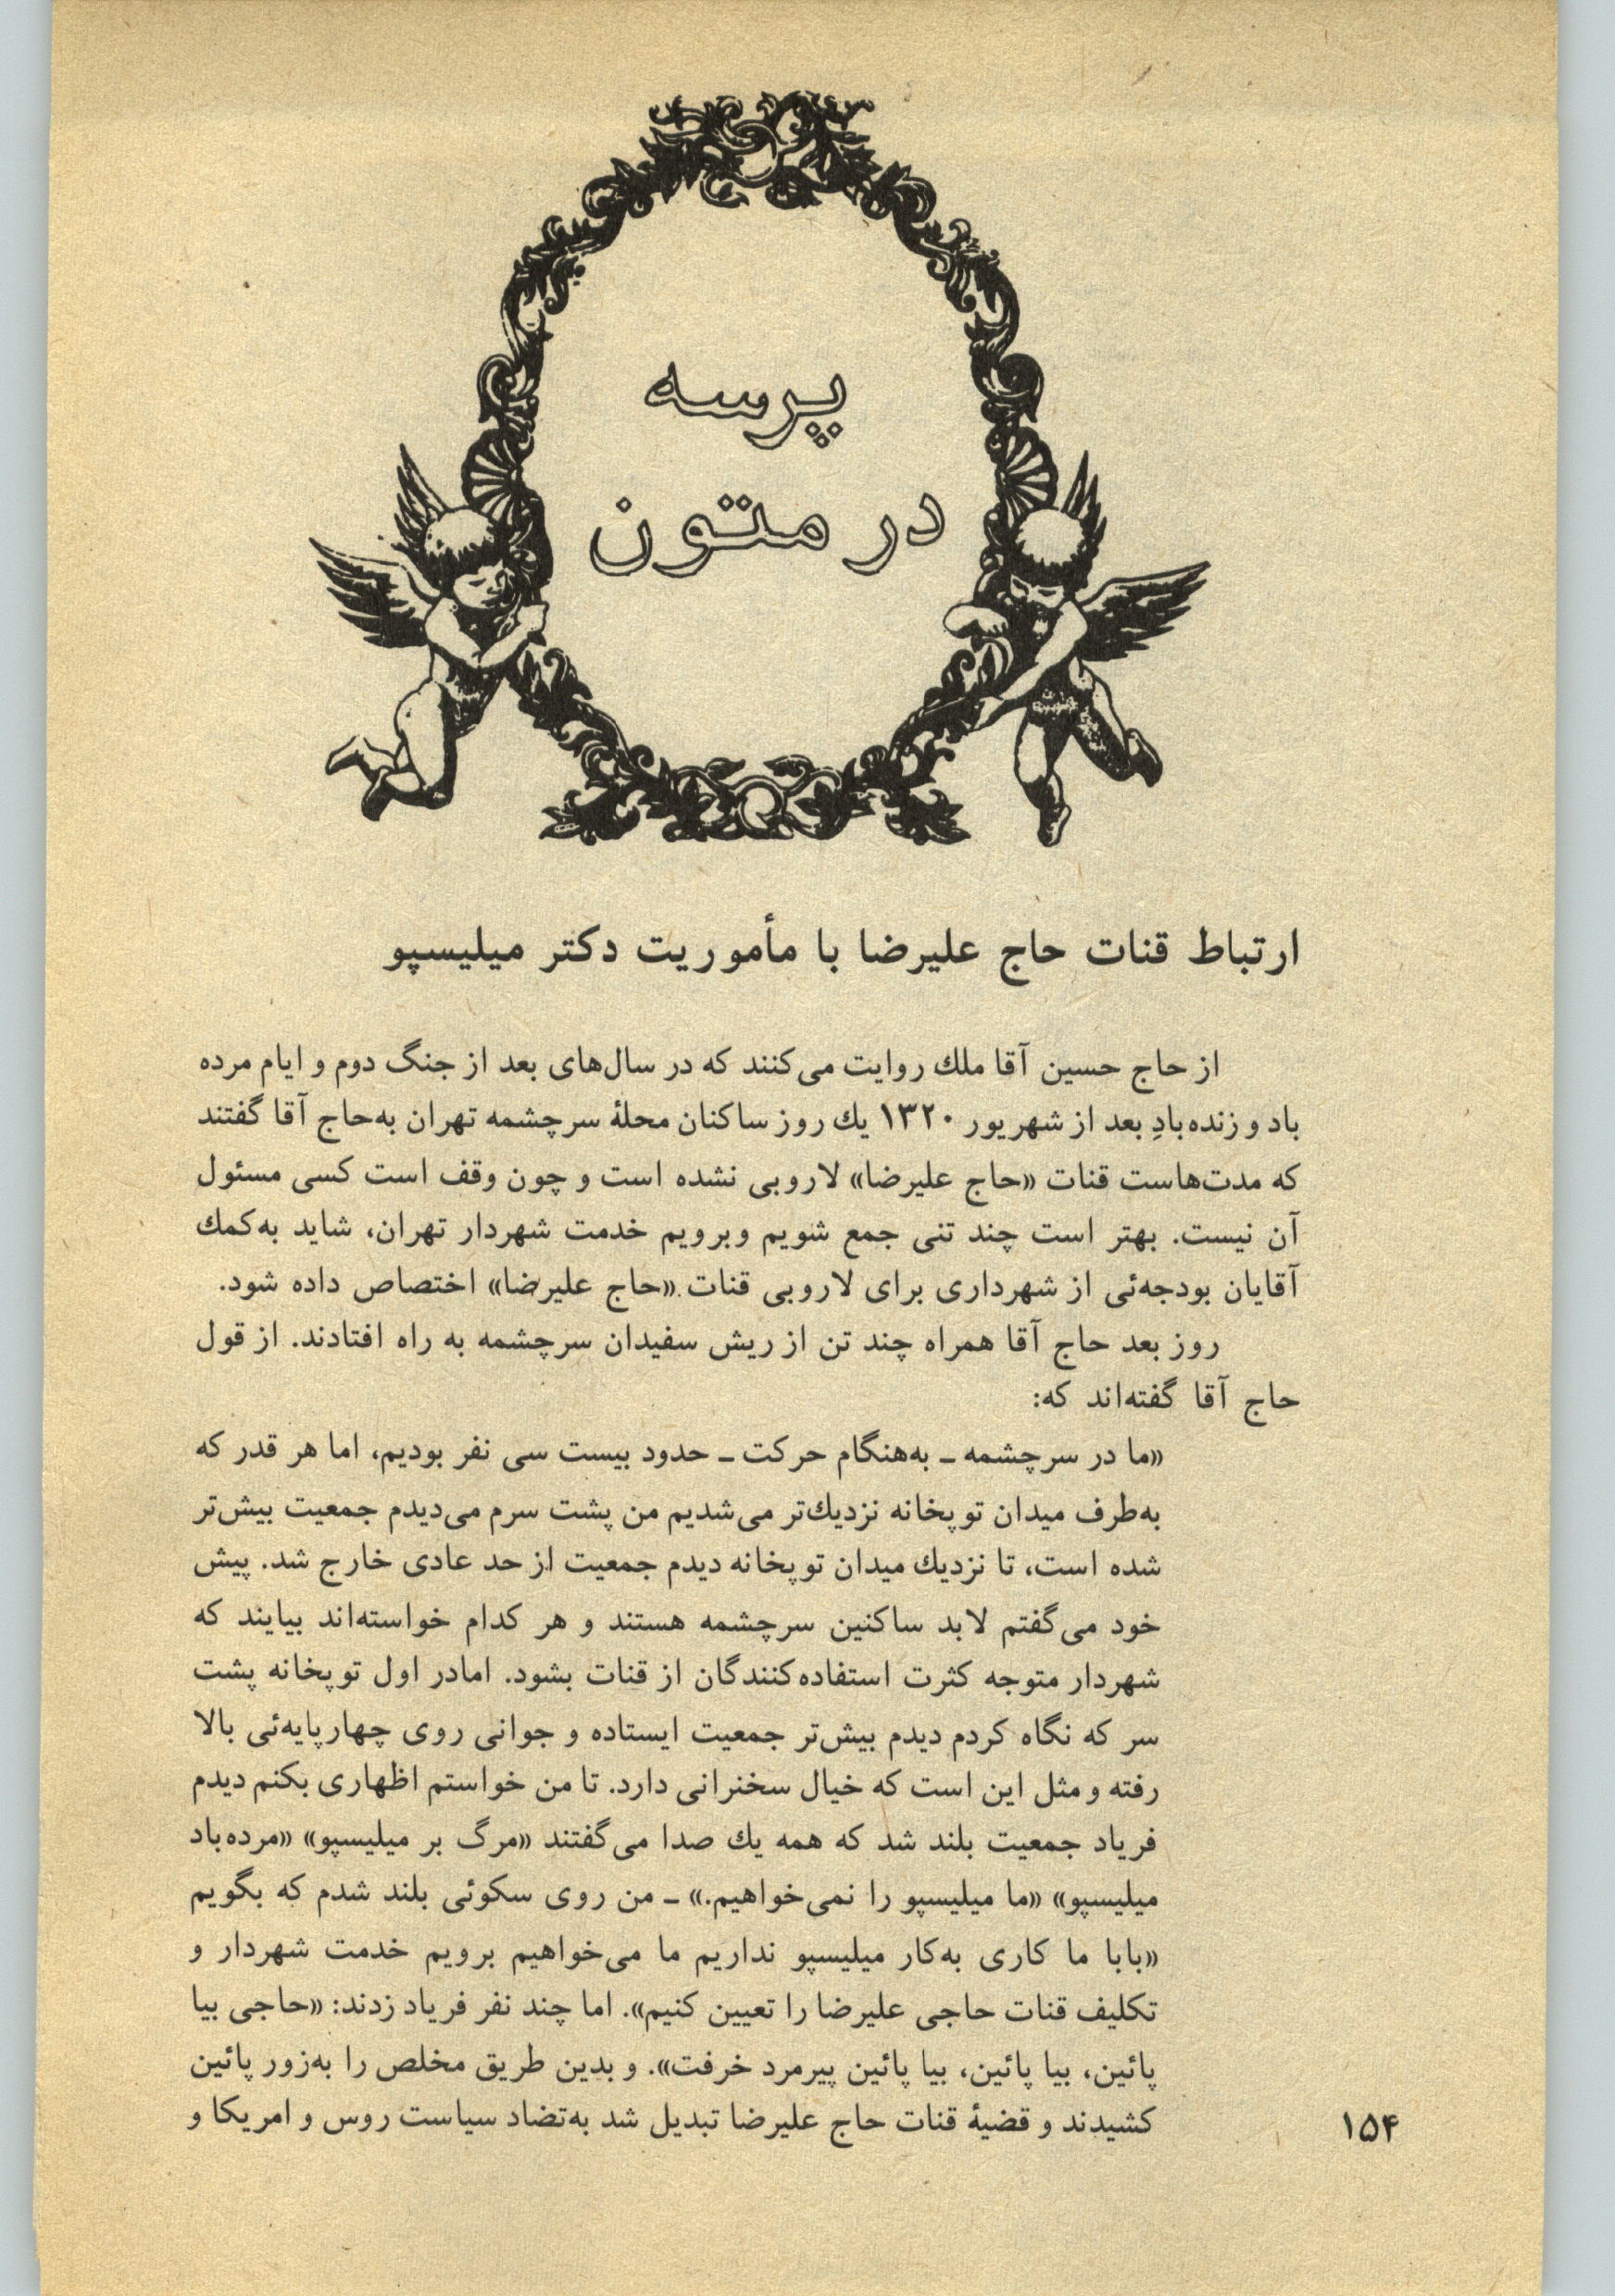 پرسه
در متون
ارتباط قنات حاج علیرضا با مأموریت دکتر میلیسپو
از حاج حسین آقا ملك روایت می‌کنند که در سال‌های بعد از جنگ دوم و ایام مرده
باد و زنده‌بادِ بعد از شهریور ۱۳۲۰ یك روز ساکنان محلهٔ سرچشمه تهران به‌حاج آقا گفتند
که مدت‌هاست قنات «حاج علیرضا» لاروبی نشده است و چون وقف است کسی مسئول
آن نیست. بهتر است چند تنی جمع شویم وبرویم خدمت شهردار تهران، شاید به‌کمك
آقایان بودجه‌ئی از شهرداری برای لاروبی قنات «حاج علیرضا» اختصاص داده شود.
روز بعد حاج آقا همراه چند تن از ریش سفیدان سرچشمه به راه افتادند. از قول
حاج آقا گفته‌اند که:
«ما در سرچشمه ـ به‌هنگام حرکت ـ حدود بیست سی نفر بودیم، اما هر قدر که
به‌طرف میدان توپخانه نزدیك‌تر می‌شدیم من پشت سرم می‌دیدم جمعیت بیش‌تر
شده است، تا نزدیك میدان توپخانه دیدم جمعیت از حد عادی خارج شد. پیش
خود می‌گفتم لابد ساکنین سرچشمه هستند و هر کدام خواسته‌اند بیایند که
شهردار متوجه کثرت استفاده‌کنندگان از قنات بشود. امادر اول توپخانه پشت
سر که نگاه کردم دیدم بیش‌تر جمعیت ایستاده و جوانی روی چهارپایه‌ئی بالا
رفته و مثل این است که خیال سخنرانی دارد. تا من خواستم اظهاری بکنم دیدم
فریاد جمعیت بلند شد که همه یك صدا می‌گفتند «مرگ بر میلیسپو» «مرده‌باد
میلیسپو» «ما میلیسپو را نمی‌خواهیم.» ـ من روی سکوئی بلند شدم که بگویم
«بابا ما کاری به‌کار میلیسپو نداریم ما می‌خواهیم برویم خدمت شهردار و
تکلیف قنات حاجی علیرضا را تعیین کنیم». اما چند نفر فریاد زدند: «حاجی بیا
پائین، بیا پائین، بیا پائین پیرمرد خرفت». و بدین طریق مخلص را به‌زور پائین
کشیدند و قضیهٔ قنات حاج علیرضا تبدیل شد به‌تضاد سیاست روس و امریکا و
۱۵۴